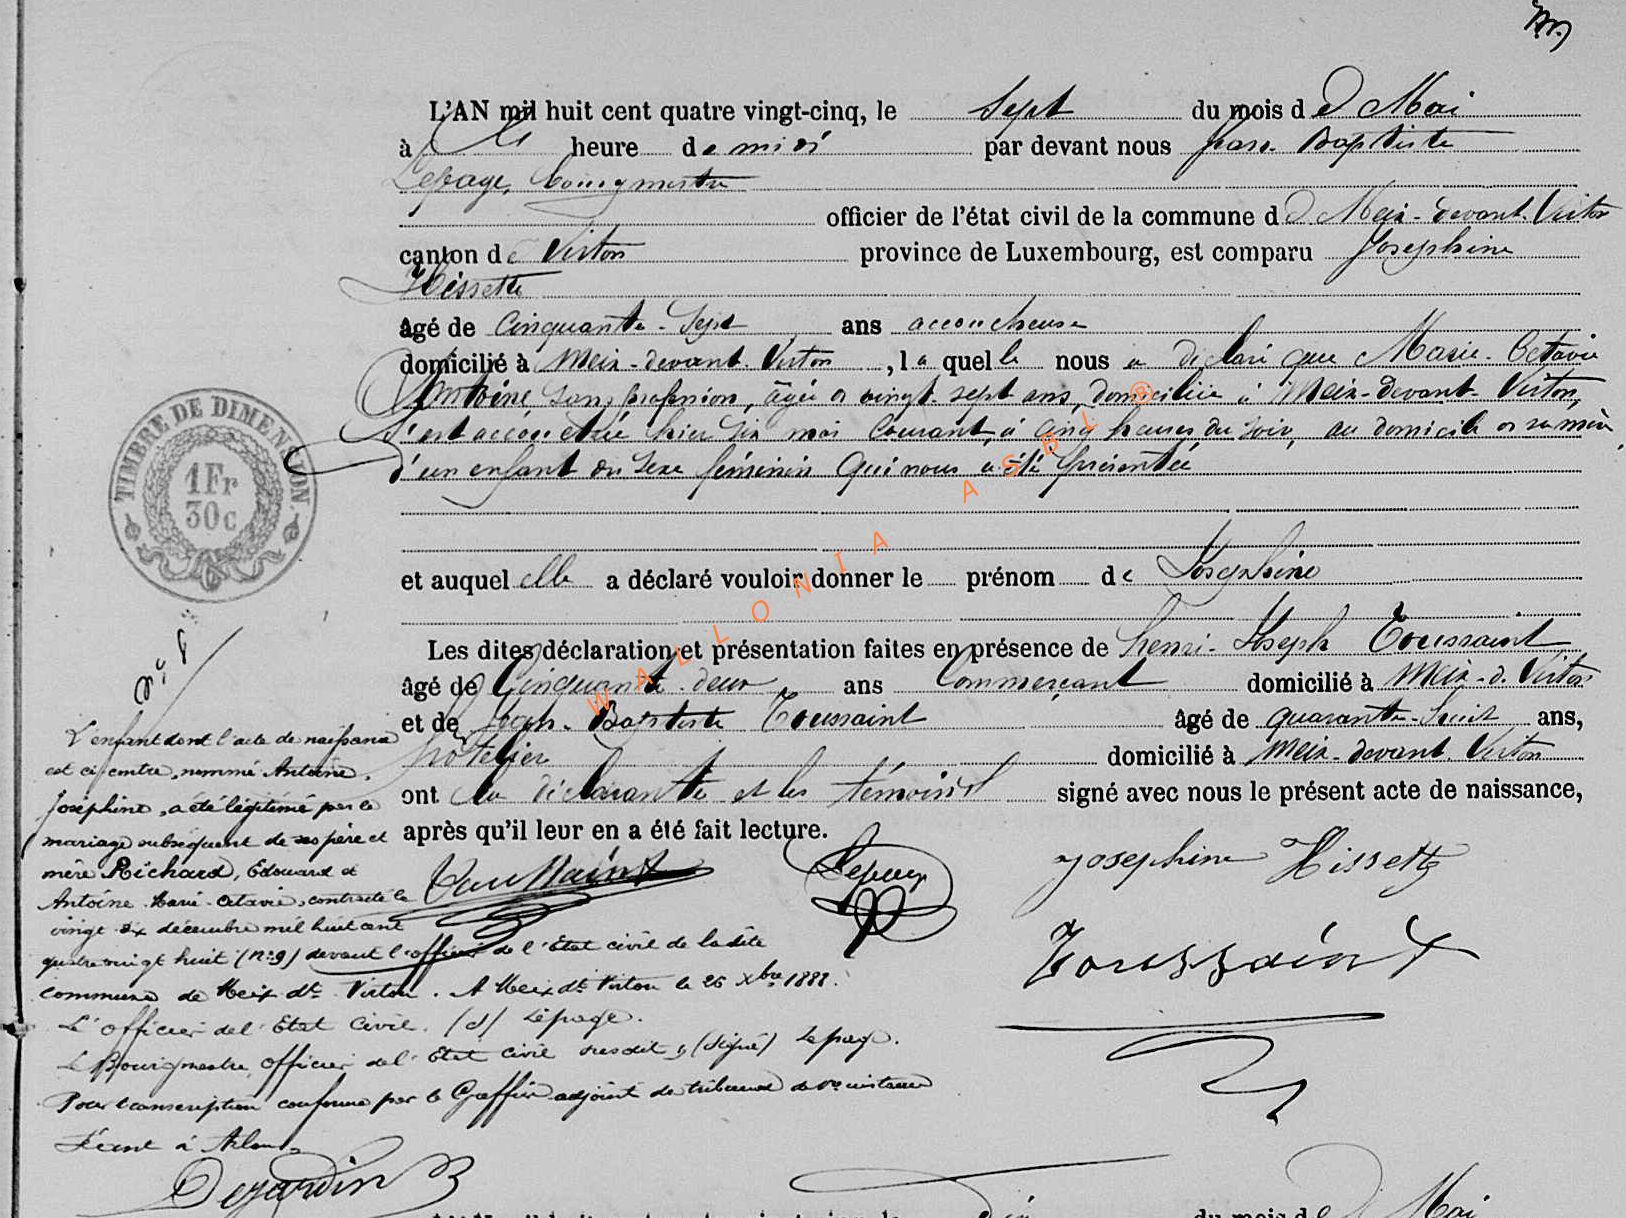 L'AN mil huit cent quatre vingt-cinq, le sept du mois de Mai
à heure de midi par devant nous Jean Baptiste
Lepage, bourgmestre
officier de l'état civil de la commune de Meix-devant-Virton
canton de Virton province de Luxembourg, est comparu Josephine
Hissette
âgé de cinquante-sept ans accoucheuse
domicilié à Meix-devant-Virton, laquelle nous a déclaré que Marie-Octavie
Antoine sans profession, âgée de vingt sept ans, domiciliée à Meix-devant-Virton,
s'est accouchée hier six mai courant, à cinq heures du soir, au domicile de sa mère,
d'un enfant du sexe féminin qui nous a été présentée
et auquel elle a déclaré vouloir donner le prénom de Joséphine
Les dites déclaration et présentation faites en présence de Henri-Joseph Toussaint
âgé de cinquante-deux ans commerçant domicilié à Meix-d.-Virton
et de Jean-Baptiste Toussaint âgé de quarante-huit ans,
hôtelier domicilié à Meix-devant-Virton
ont la déclarante et les témoins signé avec nous le présent acte de naissance,
après qu'il leur en a été fait lecture.
Toussaint Lepage Josephine Hissette
Toussaint
TIMBRE DE DIMENSION.
1Fr
30c
N° 8
L'enfant dont l'acte de naissance
est ci contre, nommé Antoine,
Joséphine, a été légitimé par le
mariage subséquent de ses père et
mère Richard, Edouard et
Antoine Marie-Octavie, contracté le
vingt six décembre mil huit cent
quatre vingt huit (n° 9) devant l'officier de l'Etat civil de la dite
commune de Meix dt Virton. A Meix dt Virton le 26 Xbre 1888.
L'officier de l'Etat Civil. (s) Lepage.
Le Bourgmestre, officier de l'Etat civil susdit, (signé) Lepage.
Pour transcription conforme par le Greffier adjoint du tribunal de 1re instance
séant à Arlon.
Dejardin
WALLONIA ASBL ®
du mois de Mai